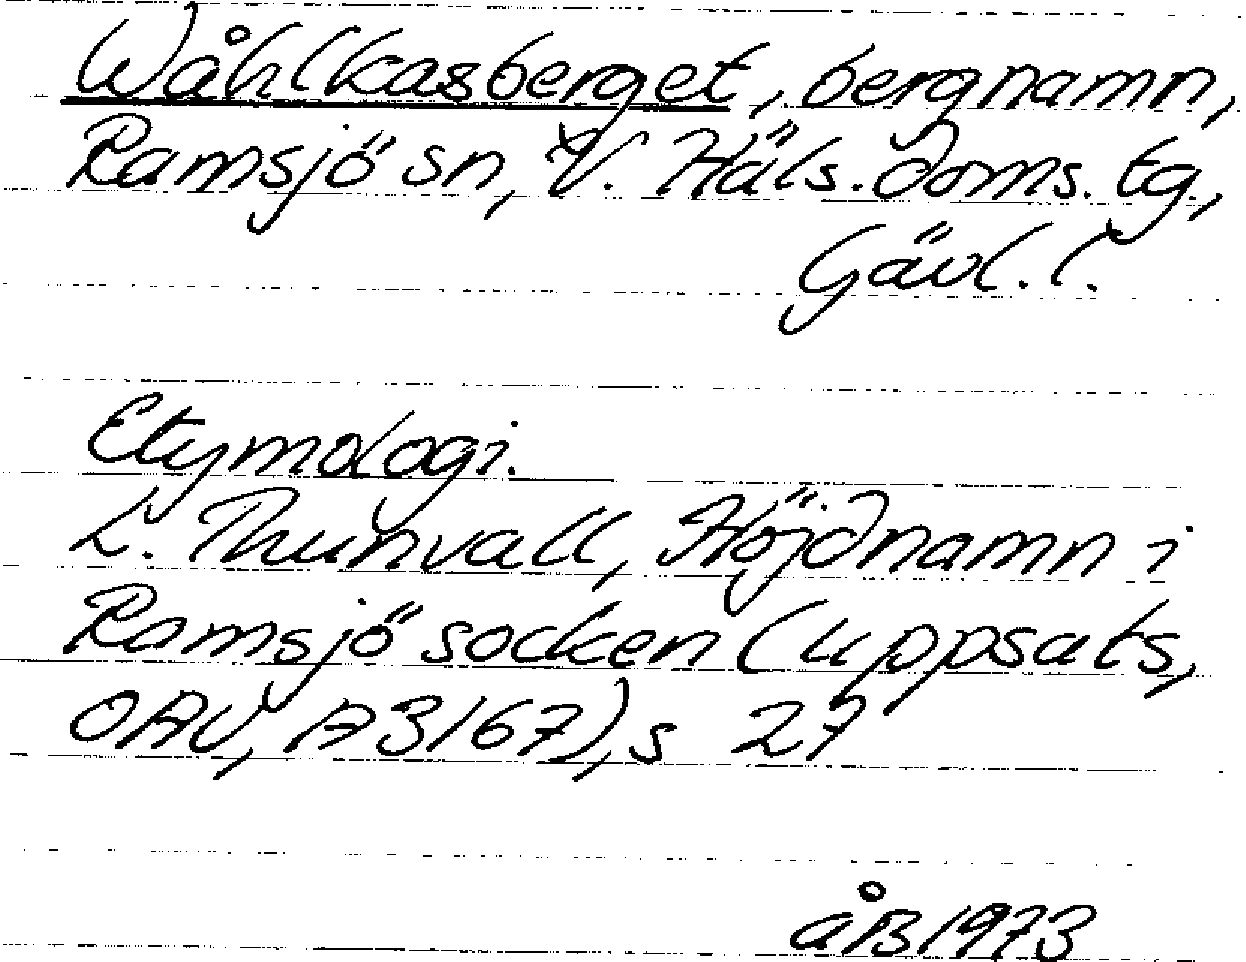 Wåhlkasberget, bergnamn,
Ramsjö sn, V. Häls. doms. tg.,
Gävl. l.
Etymologi.
L. Thunvall, Höjdnamn i
Ramsjö socken (uppsats,
OAU, A3167), s 27
åB 1973